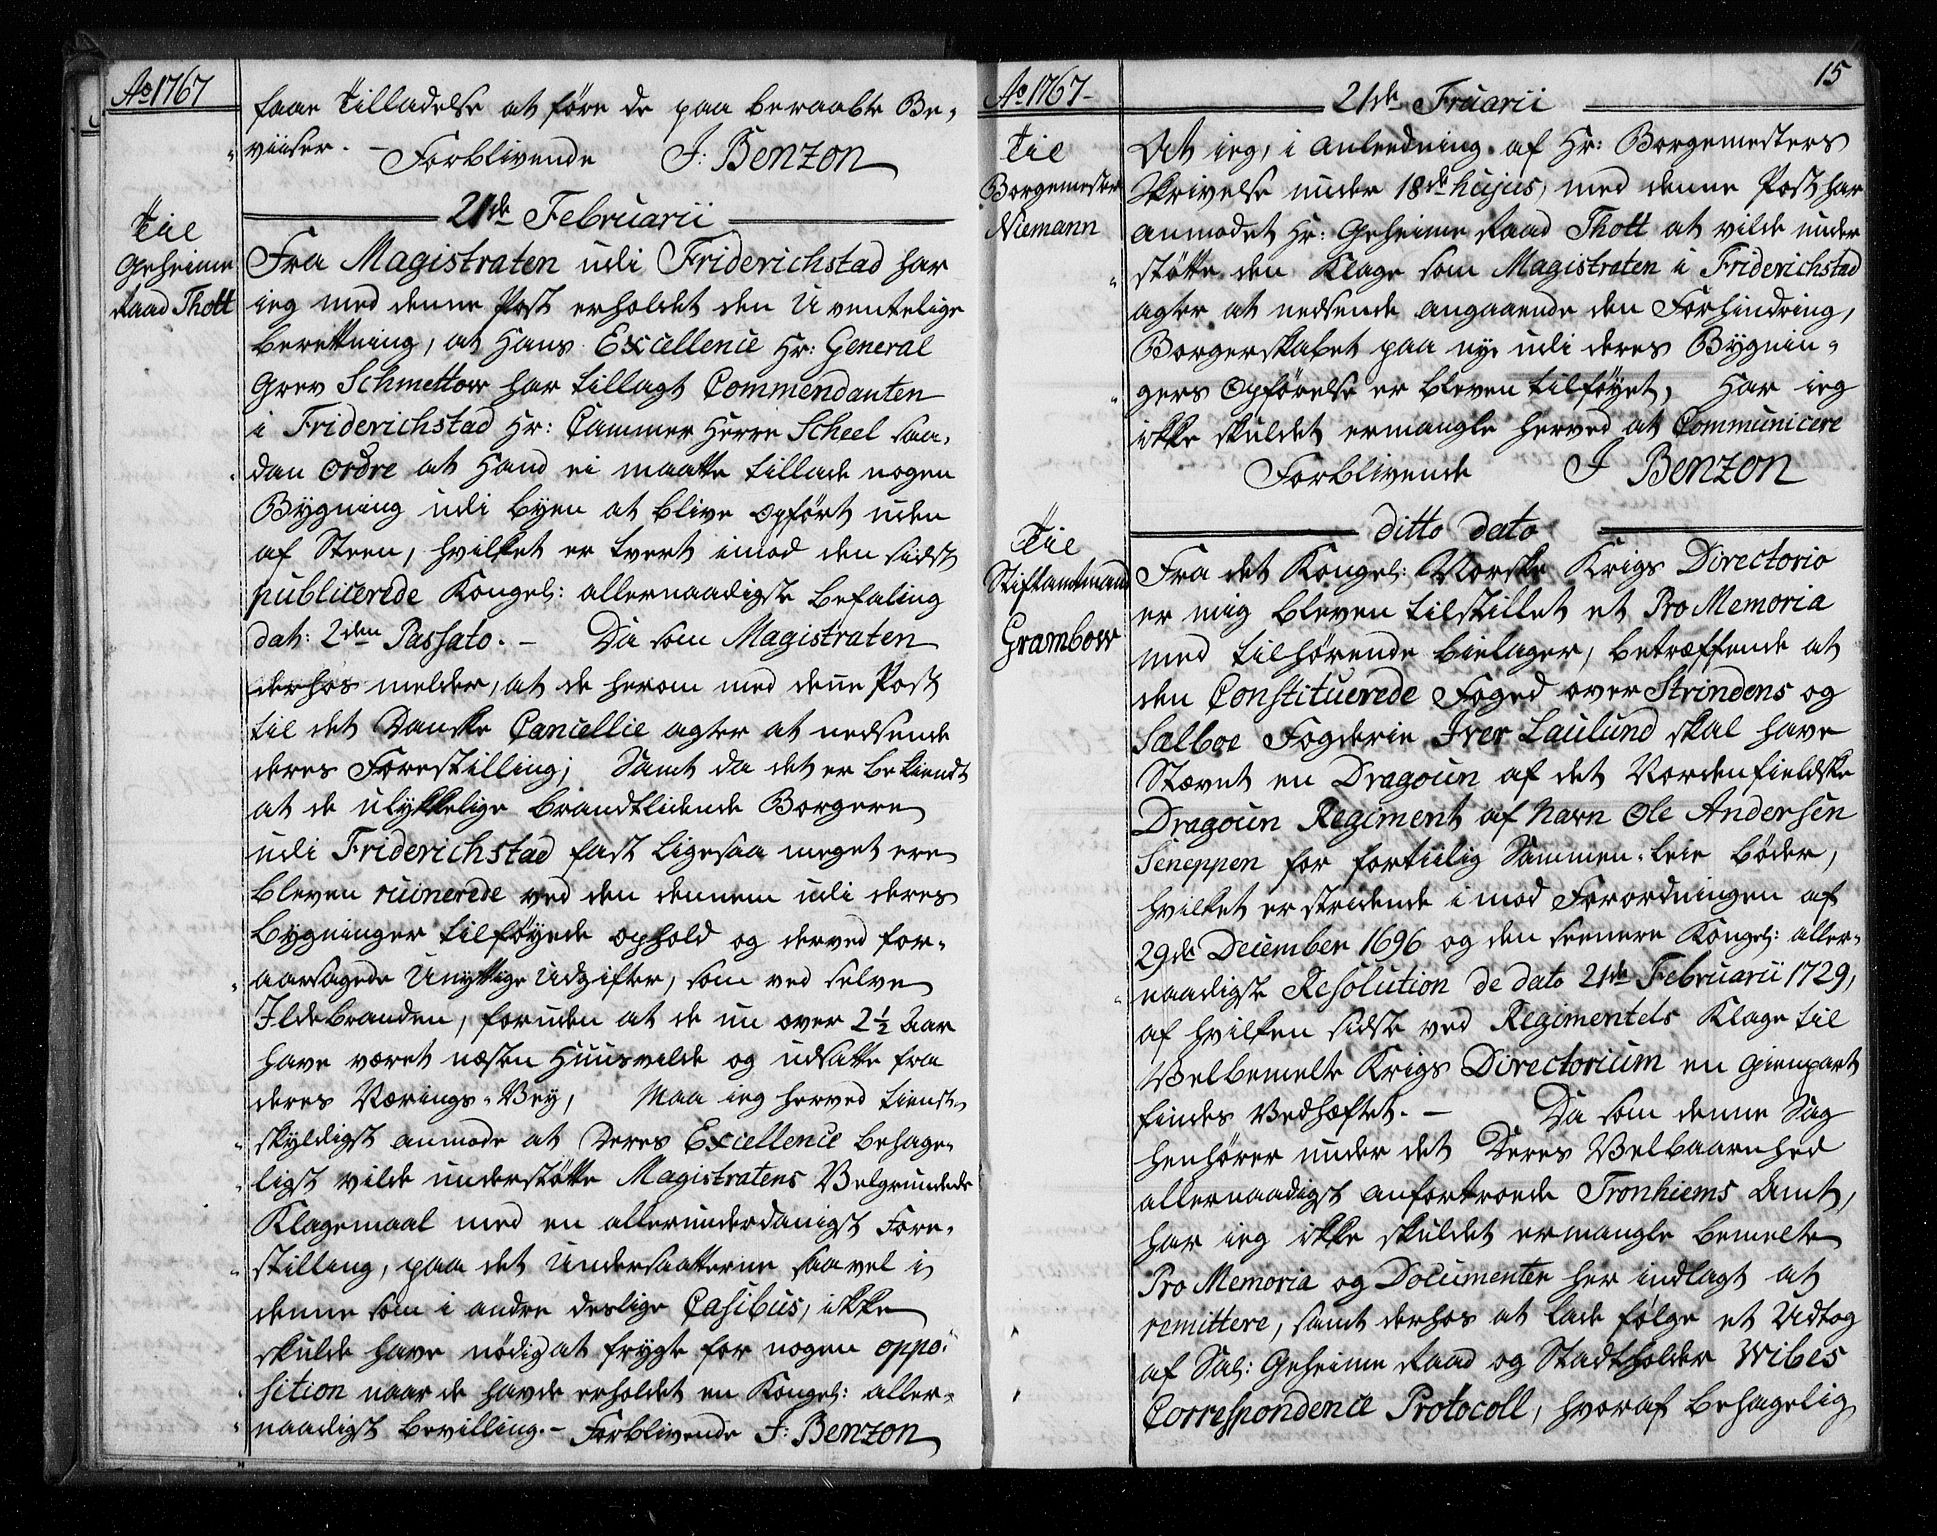 Ao 1767
faae Tilladelse at føre de paa beraabte Be-
viiser. – Forblivende J: Benzon
21de Februarii
Til
Geheime
Raad Thott
Fra Magistraten udi Friderichstad har
ieg med denne Post erholdet den U ventelige
beretning, at Hans Excellence Hr: General
Grev Schmettow har tillagt Commendanten
i Friderichstad Hr: Cammer Herre Scheel saa-
dan Ordre at Hand ei maatte tillade nogen
Bygning udi byen at blive opført uden
af Steen, hvilket er tvert imod den sidst
publicerede Kongel: allernaadigste befaling
dat: 2den Passato. – Da som Magistraten
derhos melder, at de herom med denne Post
til det Danske Cancellie agter at nedsende
deres Forestilling; Samt da det er bekiendt
at de ulykkelige brandtlidende Borgere
udi Friderichstad fast ligesaa meget ere
bleven ruinerede ved den dennem udi deres
bygninger tilføyede ophold og derved for-
aarsagede Unyttige Udgifter, som ved selve
Ildebranden, foruden at de nu over 2 1/2 Aar
have været næsten Huusvilde og udsatte fra
deres Nærings-Vey, Maa ieg herved tienst-
skyldigst anmode at Deres Excellence behage-
ligst vilde understøtte Magistratens Velgrundede
Klagemaal med en allerunderdanigst Fore-
stilling, paa det Undersaatterne saavel i
denne som i andre deslige Casibus, ikke
skulde have nødig at frygte for nogen oppo-
sition naar de havde erholdet en Kongel: aller-
naadigst bevilling. – Forblivende J: Benzon
Ao 1767 –
15
21de Fruarii
Til
Borgemester
Niemann
At ieg, i Anledning af Hr: Borgemesters
Skrivelse under 18de hujus, med denne Post har
anmodet Hr: Geheime Raad Thott at vilde under
støtte den Klage som Magistraten i Friderichstad
agter at nedsende angaaende den Forhindring,
Borgerskabet paa nye udi deres Bygnin-
gers Opførelse er bleven tilføyet, Har ieg
ikke skuldet ermangle herved at Communicere
Forblivende J Benzon
ditto dato
Til
Stiftamtmand
Grambow
Fra det Kongel: Norske Krigs Directorio
er mig bleven tilstillet et Pro Memoria
med tilhørende bielager, betræffende at
den Constituerede Foged over Strindens og
Sælboe Fogderie Iver Laulund skal have
Stævnet en Dragoun af det Nordenfieldske
Dragoun Regiment af Navn Ole Andersen
Seneppen for fortiilig Sammen-leie bøder,
hvilket er stridende imod Forordningen af
29de December 1696 og den seenere Kongel: aller-
naadigste Resolution de dato 21de Februarii 1729,
af hvilken sidste ved Regimentets Klage til
Velbemelte Krigs Directorium en gienpart
findes Vedhæftet. – Da som denne Sag
henhører under det Deres Velbaarnhed
allernaadigst anfortroede Tronhiems Amt,
har ieg ikke skuldet ermangle bemelte
Pro Memoria og Documenter her indlagt at
remittere, samt derhos at lade følge et Udtog
af Sal: Geheime Raad og Stadtholder Wibes
Correspondence Protocoll, hvoraf behagelig